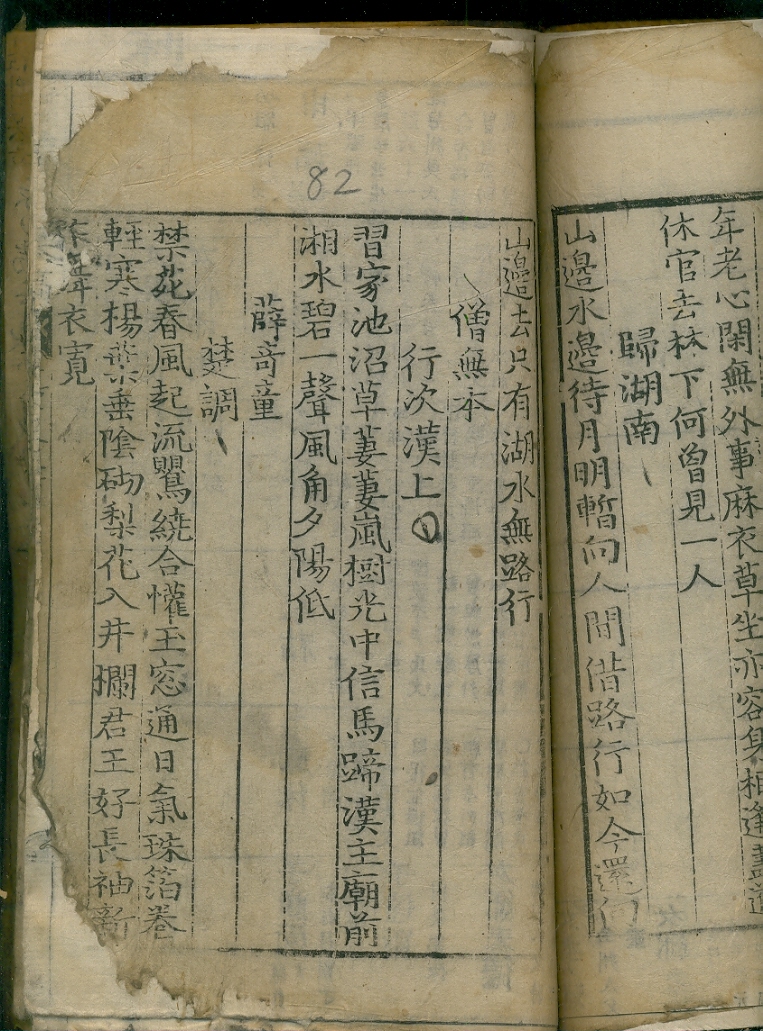 年老心閑無外事麻衣草坐亦容身相逢盡道
休官去林下何曽見一人
歸湖南
山邉水邉待月明暫向人間借路行如今還向
82
山邉去只有湖水無路行
僧無本
行次漢上
習家池沼草萋萋嵐樹光中信馬蹄漢主廟前
湘水碧一聲風角夕陽低
薛奇童
楚調
禁苑春風起流鶯繞合懽玉窓通日氣珠箔卷
輕寒楊葉垂陰砌梨花入井欄君王好長袖新
作舞衣寛